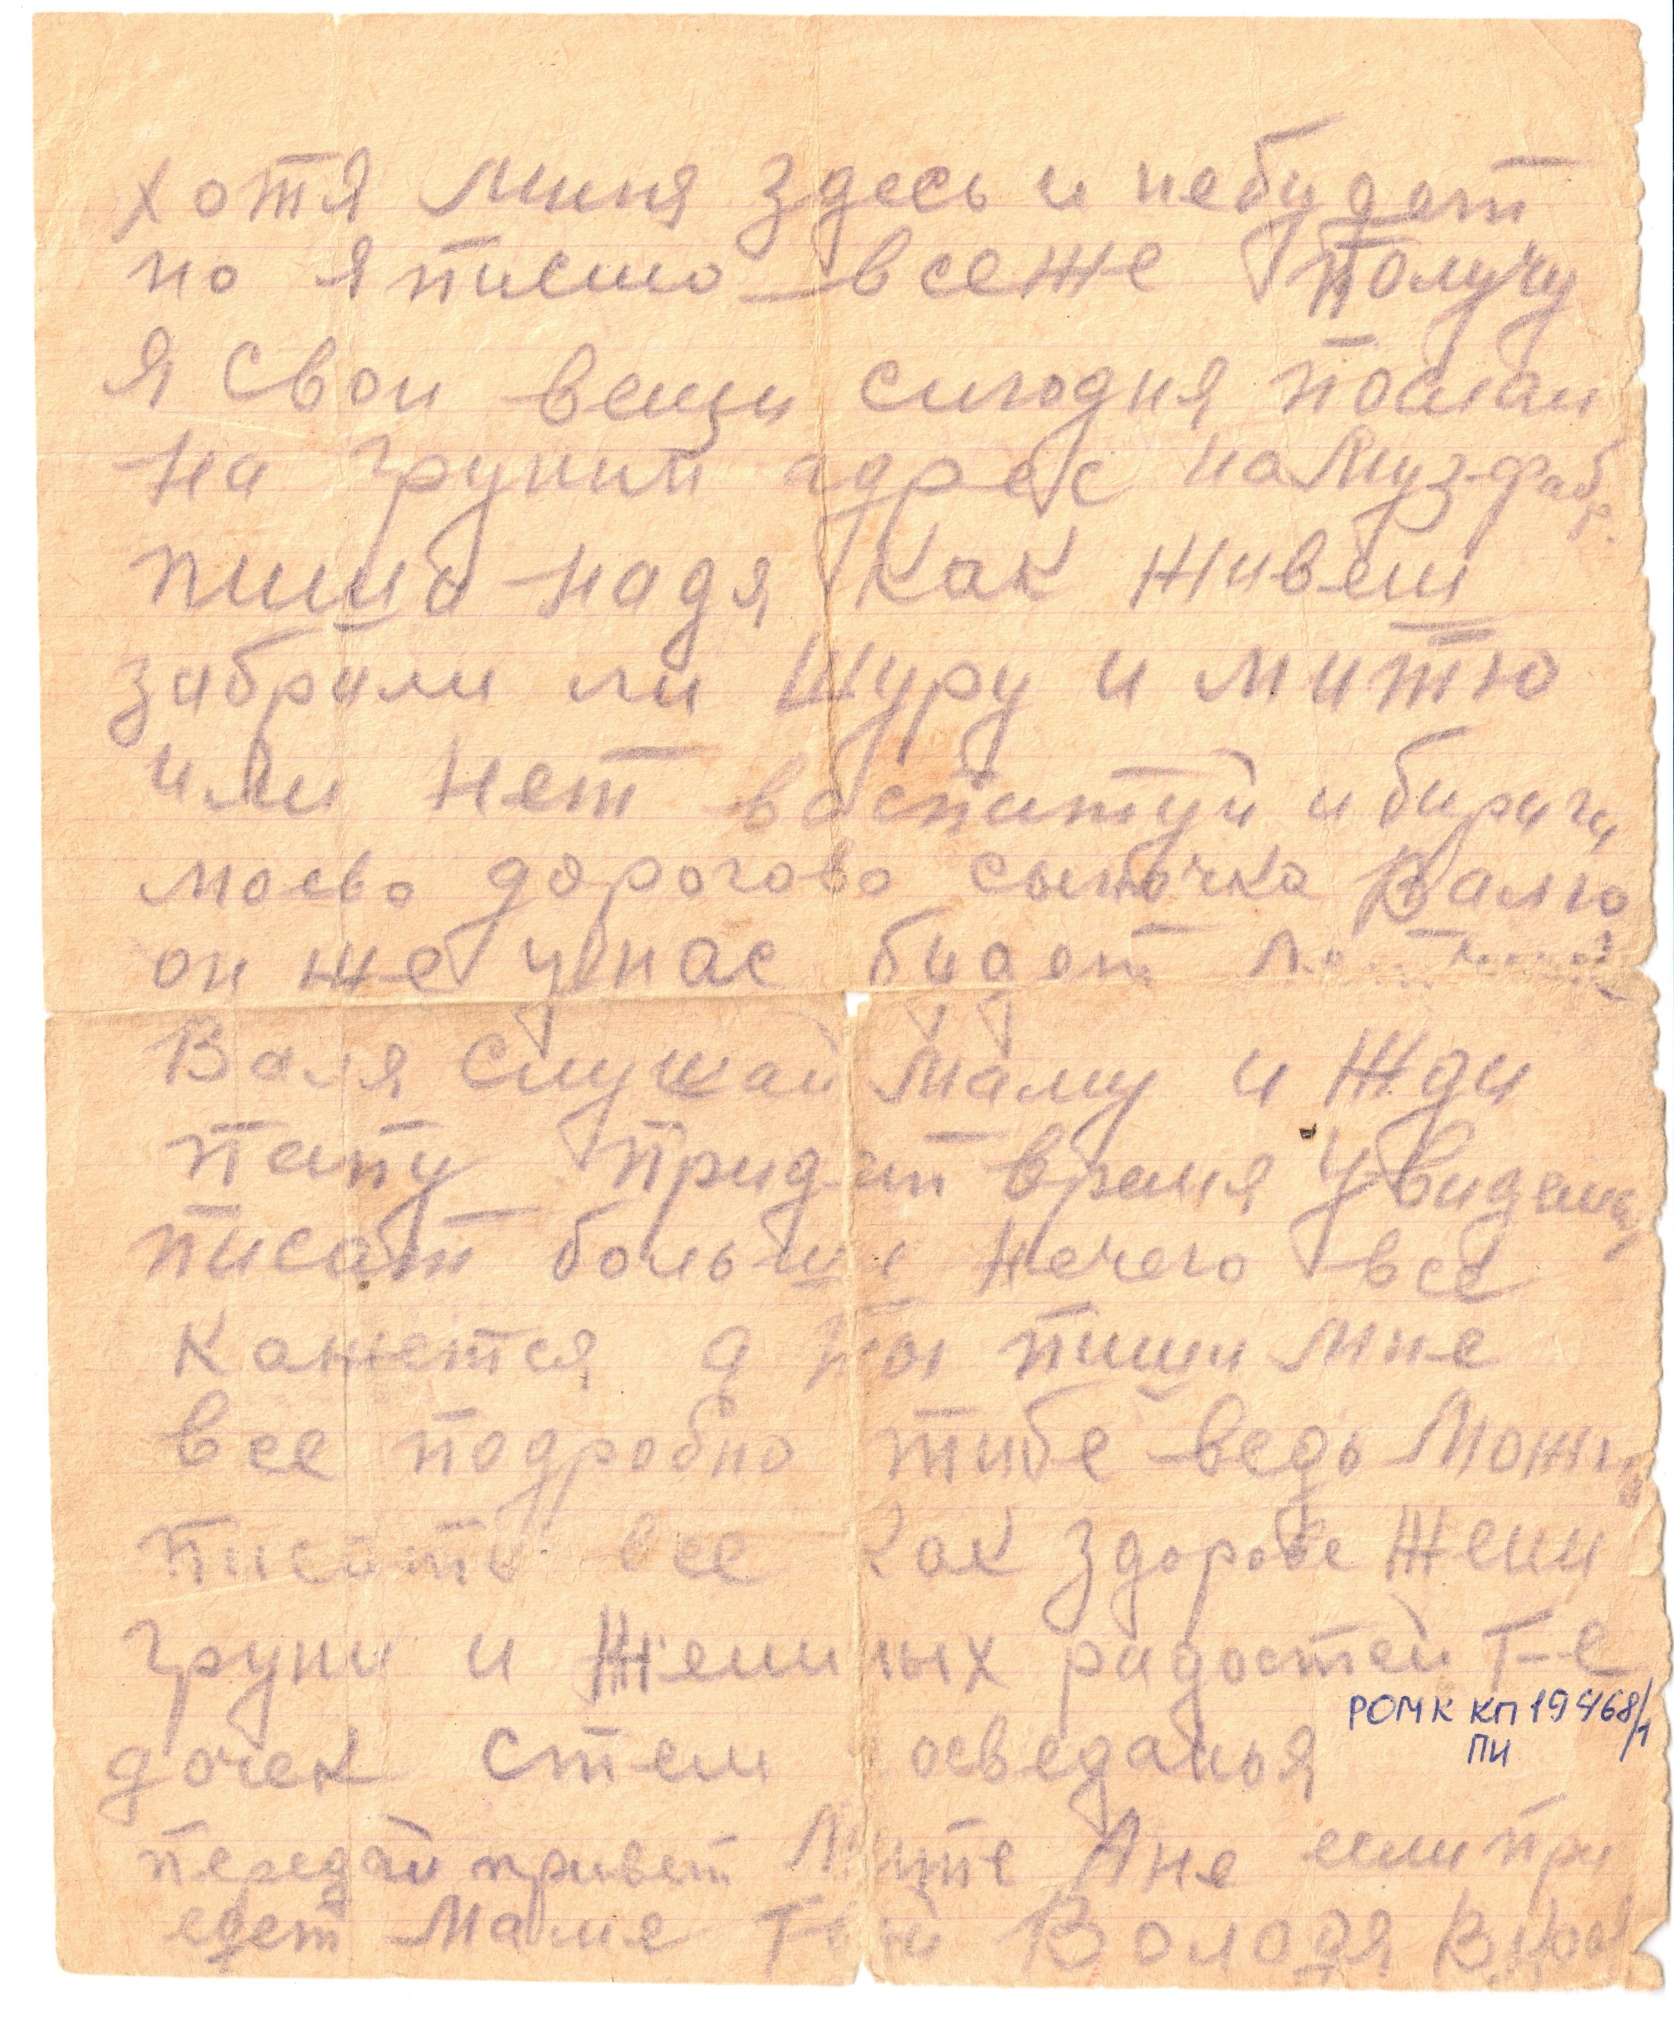 хотя миня здесь и небудет
но я писмо всеже получу
я свои вещи сигодня послал
на грунин адрес на Муз-фабр.
пиши надя как живеш
забрали ли Шуру и митю
или нет воспитуй и бириги
моево дорогово сыночка Валю
он же у нас будет
Валя слушай маму и жди
папу придет время увидимся
писат больши нечего все
кажется а ты пиши мне
все подробно тибе ведь можно
писать все как здорове Жени
груни и Жениных радостей т-е
дочек стем осведанья
РОМК КП 19468/1
ПИ
передай привет Мите Ане если при
едет Маме твой Володя